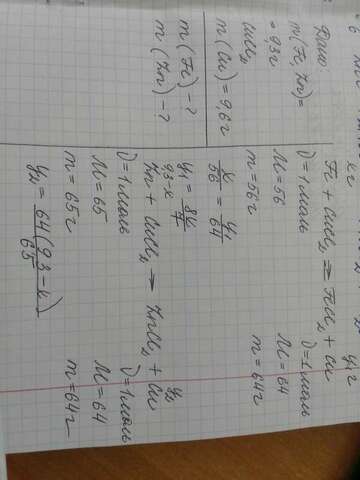 Дано
m(Fe, Zn)=
= 9,3 г
CuCl₂
m(Cu) = 9,6 г
m(Fe) - ?
m(Zn) - ?
x г
y₁ г
Fe + CuCl₂ = FeCl₂ + Cu
ν = 1 моль
ν = 1 моль
M = 56
M = 64
m = 56 г
m = 64 г
x/56 = y₁/64
y₁ = 8x/7
9,3-x
y₂
Zn + CuCl₂ → ZnCl₂ + Cu
ν = 1 моль
ν = 1 моль
M = 65
M = 64
m = 65 г
m = 64 г
y₂ = 64(9,3-x)/65